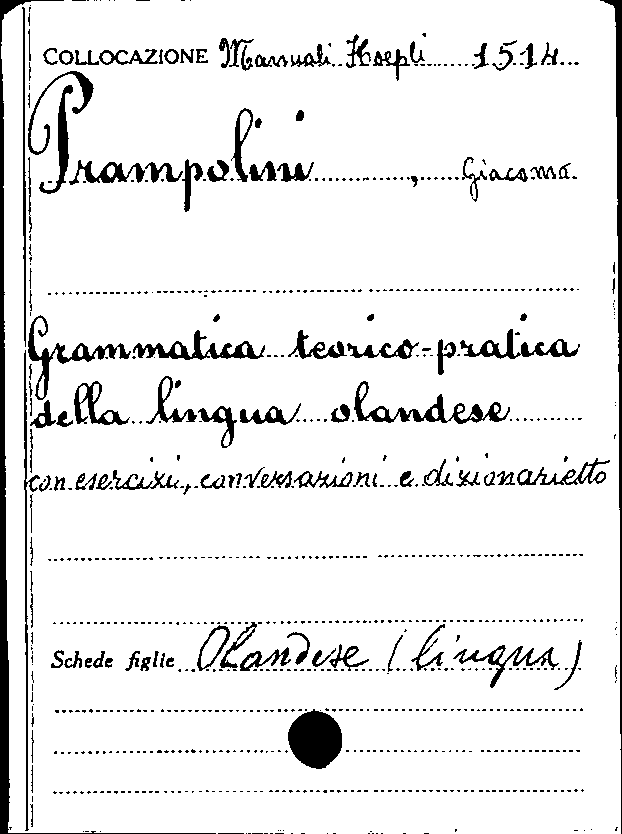 COLLOCAZIONE Manuali Hoepli 1514
Prampolini, Giacomo
Grammatica teorico-pratica
della lingua olandese
con esercizi, conversazioni e dizionarietto
Schede figlie Olandese (lingua)